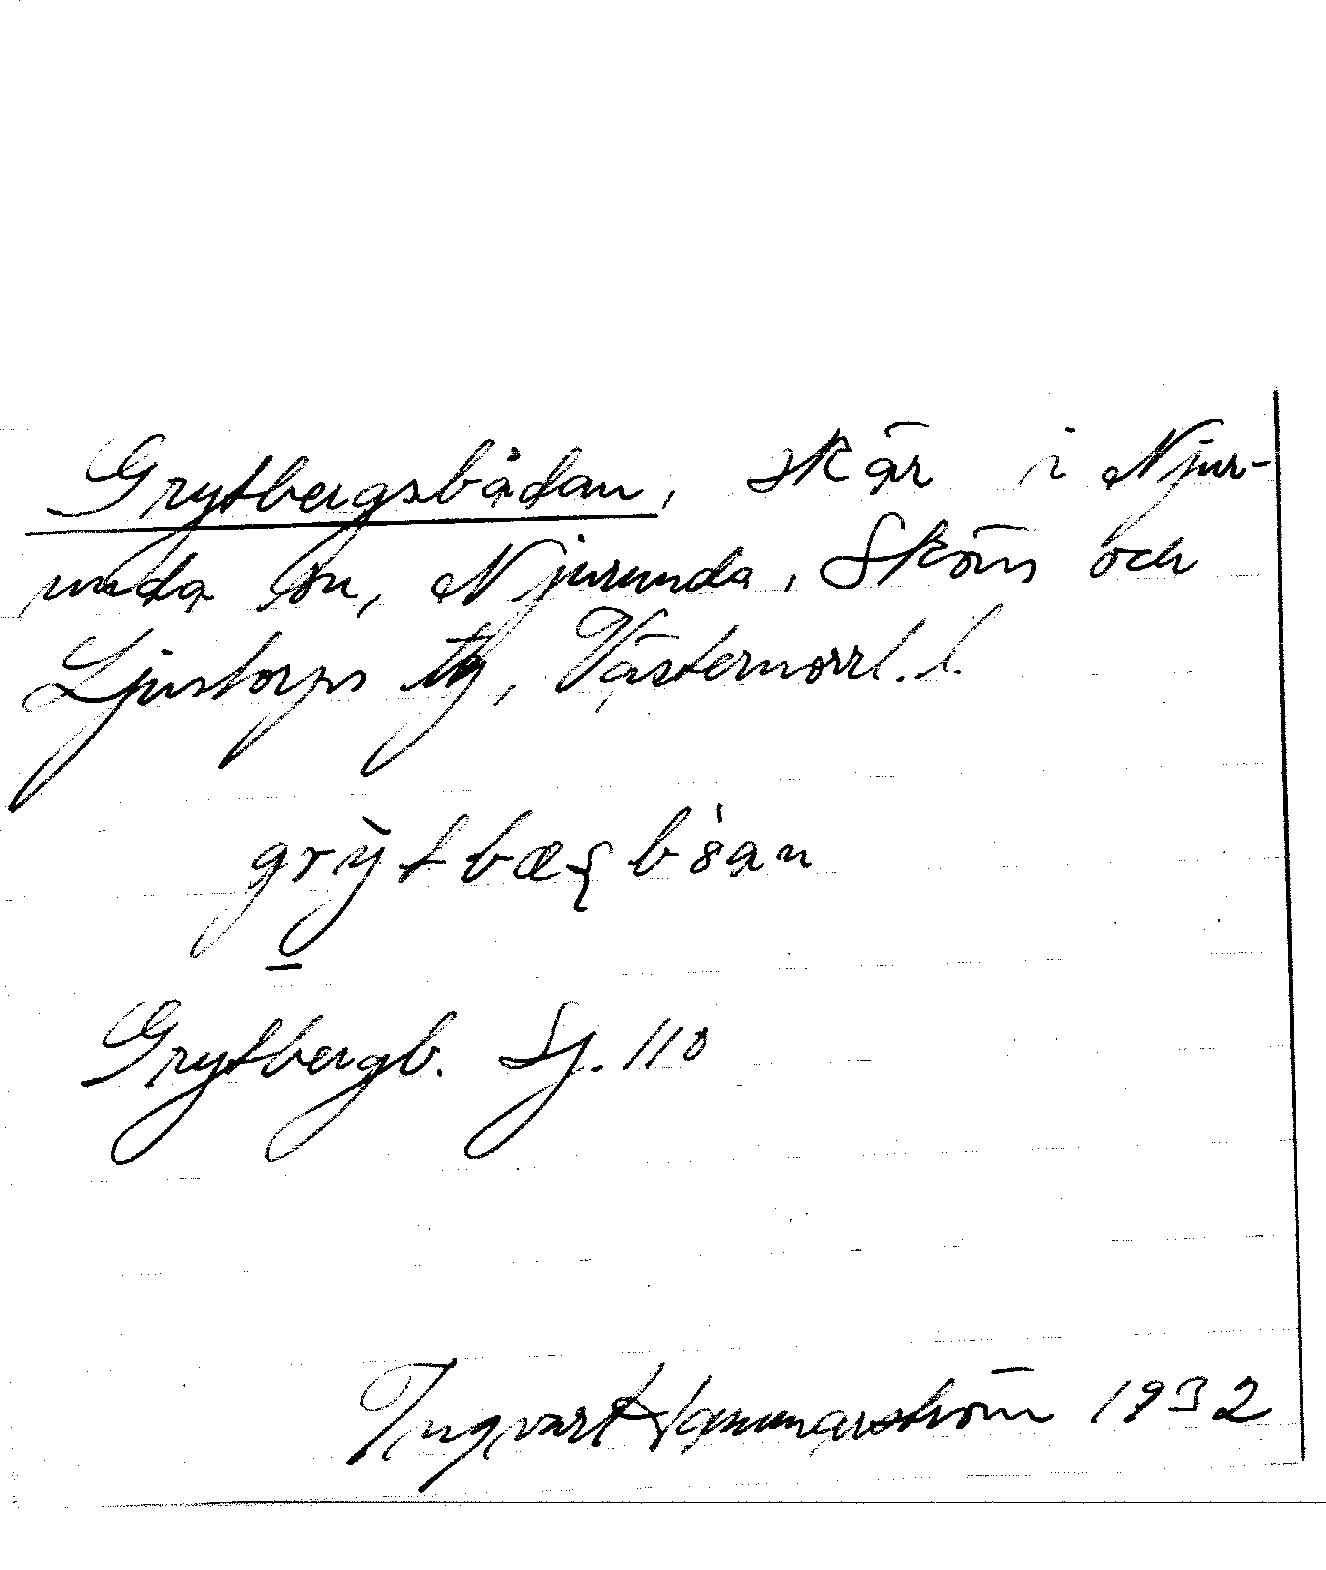 Grytbergsbådan, skär i Njur-
unda sn, Njurunda, Sköns och
Ljustorps tg, Västernorrl. l.
grỳtbæς b'8an
Grytbergb. Sj. 110
Ingvart Hammarström 1932